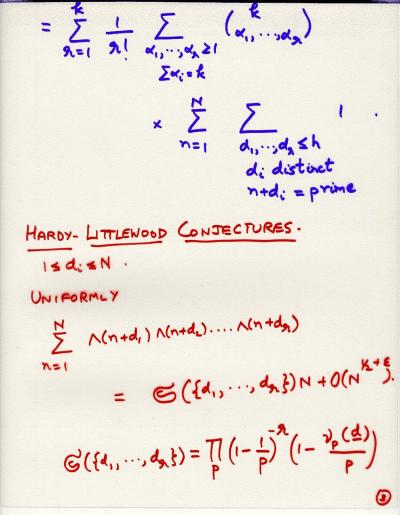 = \sum_{r=1}^{k} \frac{1}{r!} \sum_{\substack{α_1, ..., α_r ≥ 1 \\ Σα_i = k}} \binom{k}{α_1, ..., α_r}
× \sum_{n=1}^{N} \sum_{\substack{d_1, ..., d_r ≤ h \\ d_i distinct \\ n+d_i = prime}} 1 .
HARDY-LITTLEWOOD CONJECTURES.
1 ≤ d_i ≤ N .
UNIFORMLY
\sum_{n=1}^{N} Λ(n+d_1) Λ(n+d_2) .... Λ(n+d_r)
= 𝔖({d_1, ..., d_r}) N + O(N^{1/2+ε}).
𝔖({d_1, ..., d_r}) = \prod_p (1 - \frac{1}{p})^{-r} (1 - \frac{ν_p(\underline{d})}{p})
③